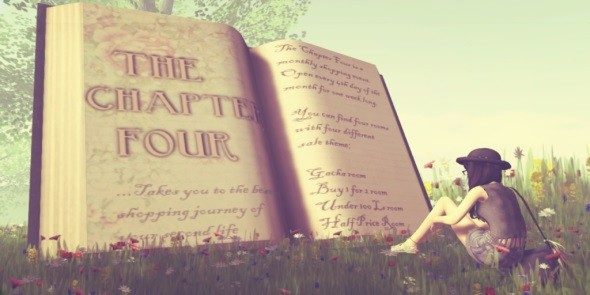 THE
CHAPTER
FOUR
...Takes you to the best
shopping journey of
your second life
The Chapter Four is a
monthly shopping event
Open every 4th day of the
month for one week long.
You can find four rooms
with four different
sale theme:
Gacha room
Buy 1 for 1 room
Under 100 L room
Half Price Room